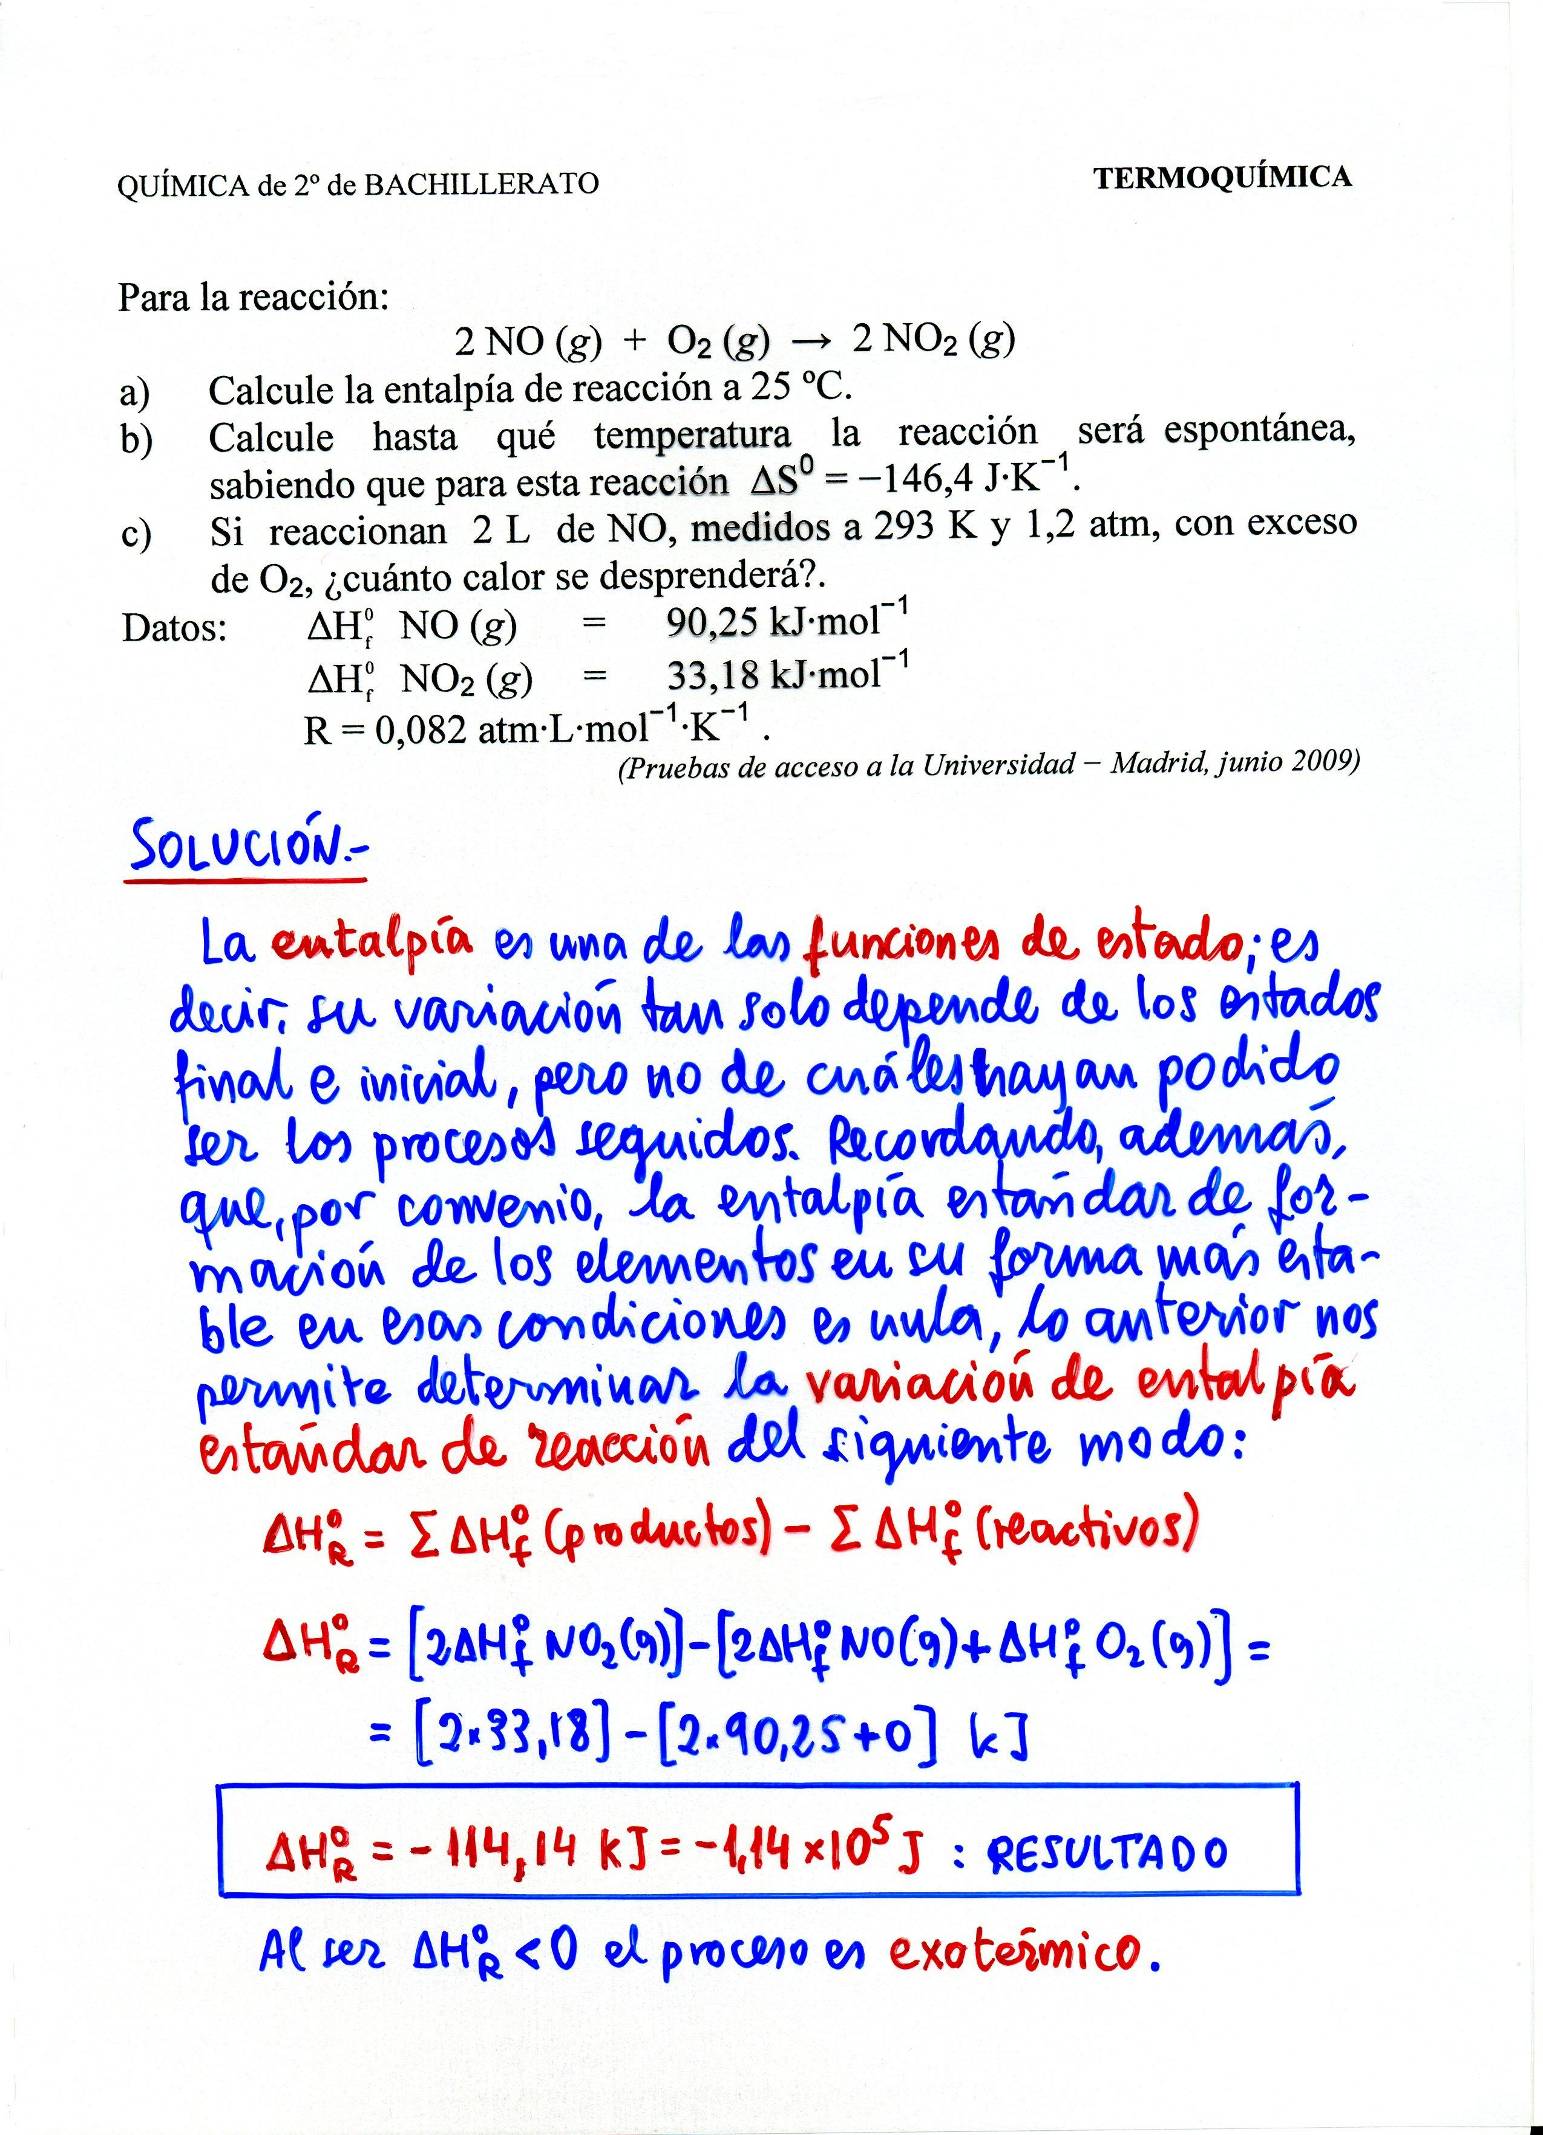 QUÍMICA de 2º de BACHILLERATO TERMOQUÍMICA
Para la reacción:
2 NO (g) + O₂ (g) → 2 NO₂ (g)
a) Calcule la entalpía de reacción a 25 ºC.
b) Calcule hasta qué temperatura la reacción será espontánea,
sabiendo que para esta reacción ΔS⁰ = −146,4 J·K⁻¹.
c) Si reaccionan 2 L de NO, medidos a 293 K y 1,2 atm, con exceso
de O₂, ¿cuánto calor se desprenderá?.
Datos: ΔH⁰f NO (g) = 90,25 kJ·mol⁻¹
ΔH⁰f NO₂ (g) = 33,18 kJ·mol⁻¹
R = 0,082 atm·L·mol⁻¹·K⁻¹ .
(Pruebas de acceso a la Universidad − Madrid, junio 2009)
SOLUCIÓN.-
La entalpía es una de las funciones de estado; es
decir, su variación tan solo depende de los estados
final e inicial, pero no de cuáles hayan podido
ser los procesos seguidos. Recordando, además,
que, por convenio, la entalpía estándar de for-
mación de los elementos en su forma más esta-
ble en esas condiciones es nula, lo anterior nos
permite determinar la variación de entalpía
estándar de reacción del siguiente modo:
ΔH⁰R = Σ ΔH⁰f (productos) − Σ ΔH⁰f (reactivos)
ΔH⁰R = [2ΔH⁰f NO₂(g)] − [2ΔH⁰f NO(g) + ΔH⁰f O₂(g)] =
= [2×33,18] − [2×90,25+0] kJ
ΔH⁰R = −114,14 kJ = −1,14 ×10⁵ J : RESULTADO
Al ser ΔH⁰R < 0 el proceso es exotérmico.